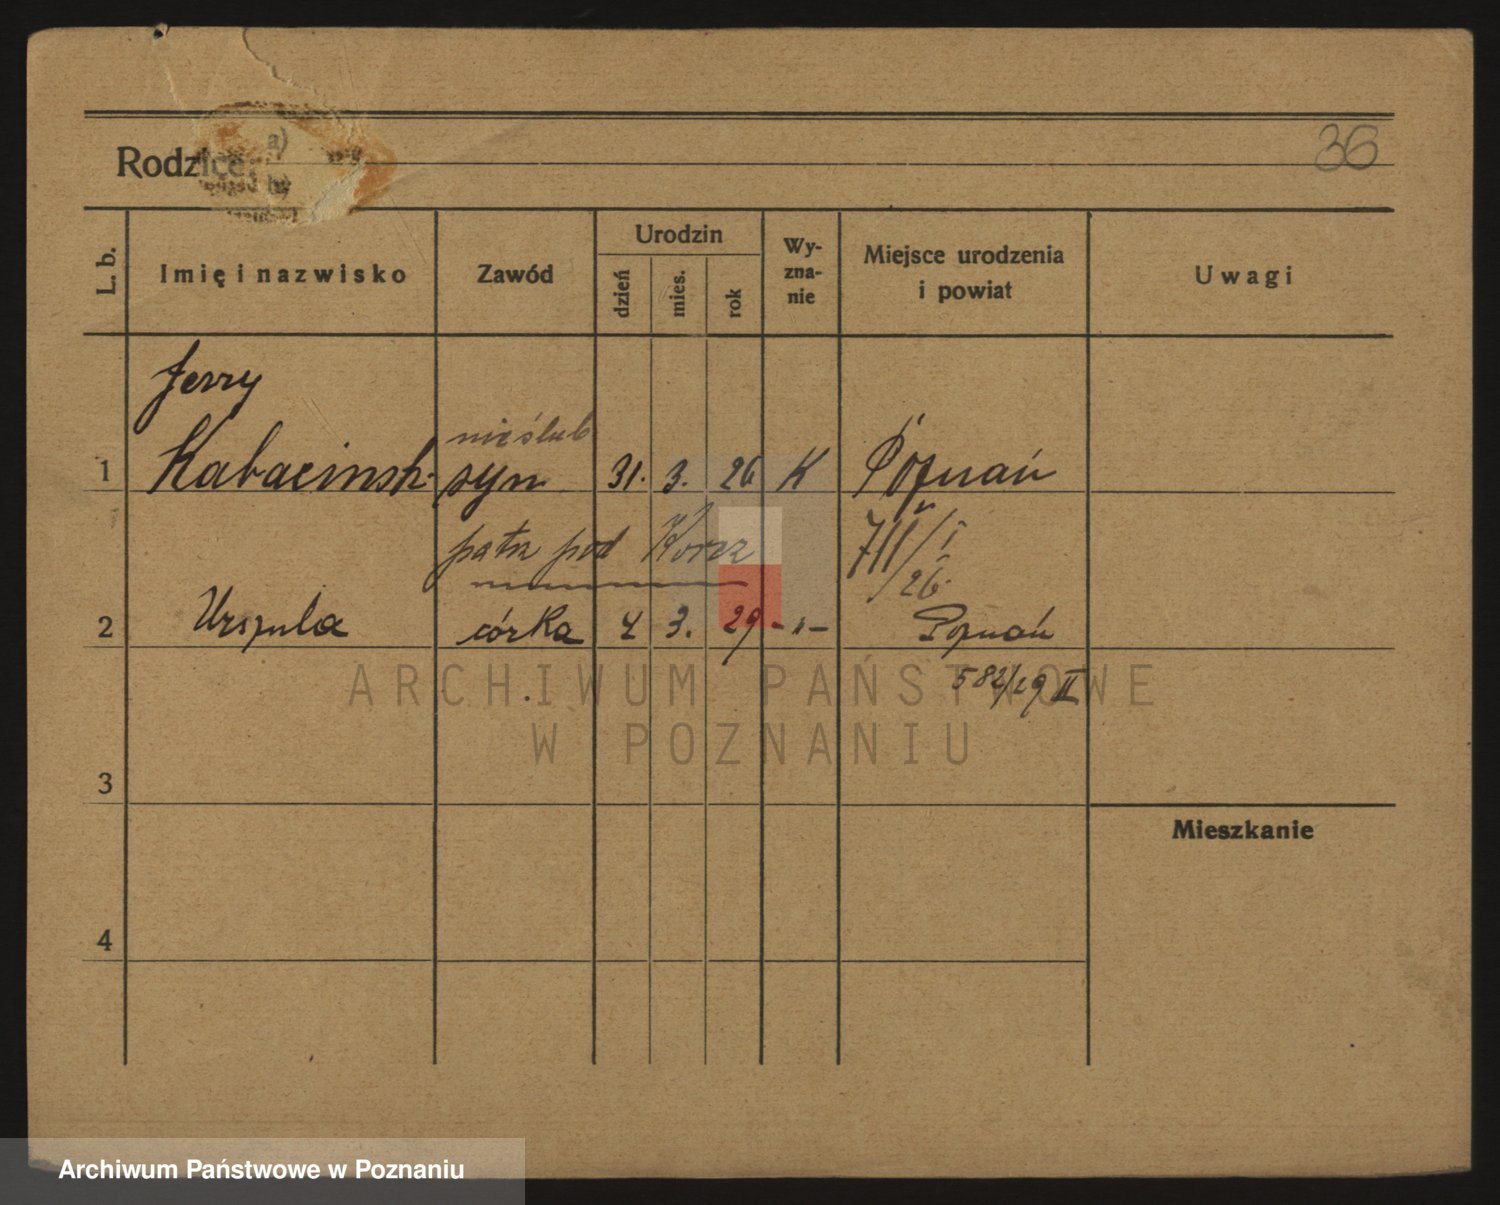 36
Rodzice:
a)
b)
L. b.
Imię i nazwisko
Zawód
Urodzin
dzień
mies.
rok
Wy-
zna-
nie
Miejsce urodzenia
i powiat
Uwagi
Jerzy
nieślub
1 Kabacinsk. syn 31. 3. 26 K Poznań
patrz pod
711/I
/26.
2 Urszula córka 4 3. 29 -"- Poznań
582/29 II
ARCHIWUM PAŃSTWOWE
W POZNANIU
3
Mieszkanie
4
Archiwum Państwowe w Poznaniu